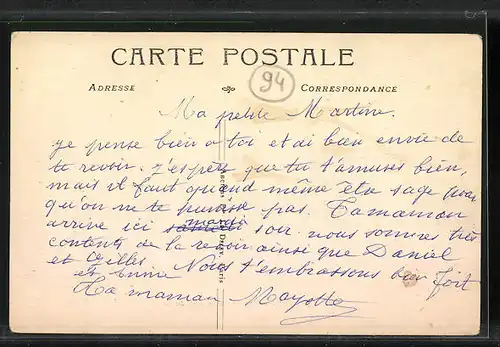 CARTE POSTALE
94
ADRESSE
CORRESPONDANCE
Ma petite Martine.
Je pense bien a toi et ai bien envie de
te revoir. J'espère que tu t'amuses bien,
mais il faut quand même être sage pour
qu'on ne te punisse pas. Ta maman
arrive ici samedi mardi soir. nous sommes très
contents de la revoir ainsi que Daniel
et Gilles. Nous t'embrassons bien fort
et
Ta maman Mayotte